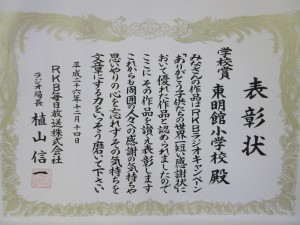 表彰状
学校賞 東明館小学校 殿
みなさんの作品はRKBラジオキャンペーン
「ありがとう子供たちの世界一短い感謝状」に
おいて優れた作品と認められましたので
ここにその作品を讃え表彰します
これからも周囲の人々への感謝の気持ちや
思いやりの心を忘れずその気持ちを
文章にする力をいっそう磨いて下さい
平成二十六年十二月十四日
RKB毎日放送株式会社
ラジオ局長 植山信一